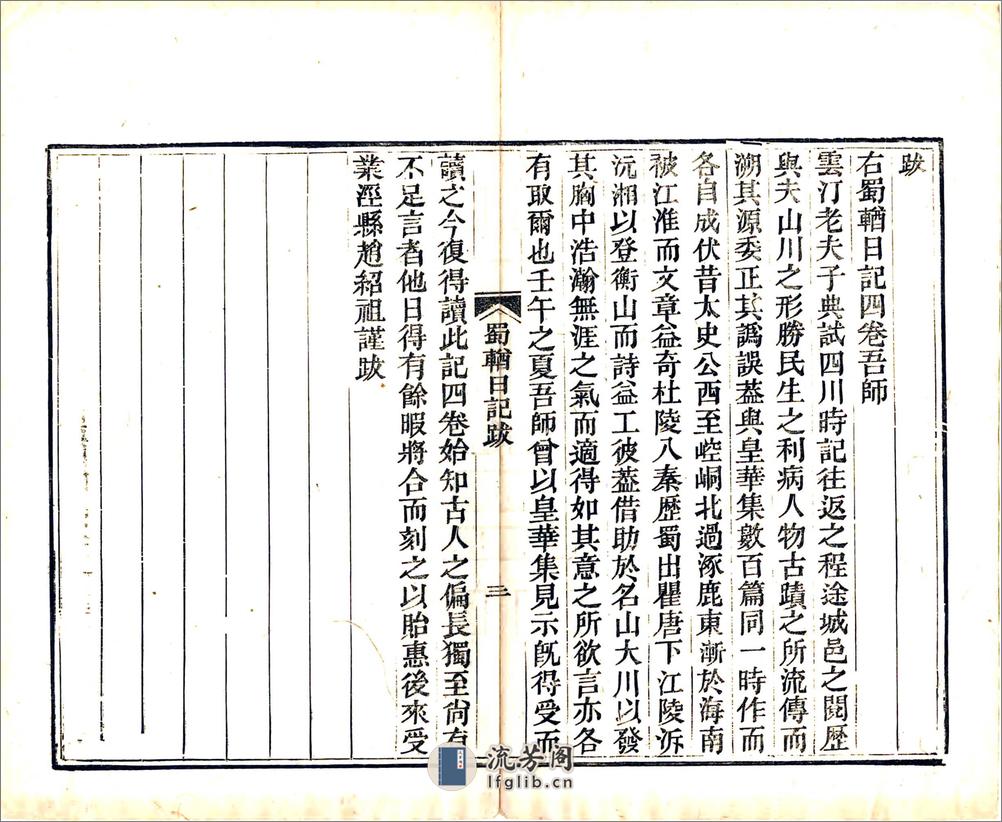 跋
右蜀輶日記四卷吾師
雲汀老夫子典試四川時記往返之程途城邑之閱歷
與夫山川之形勝民生之利病人物古蹟之所流傳而
溯其源委正其譌誤葢與皇華集數百篇同一時作而
各自成伏昔太史公西至崆峒北過涿鹿東漸於海南
被江淮而文章益奇杜陵入秦歷蜀出瞿唐下江陵泝
沅湘以登衡山而詩益工彼葢借助於名山大川以發
其胸中浩瀚無涯之氣而適得如其意之所欲言亦各
有取爾也壬午之夏吾師曾以皇華集見示旣得受而
蜀輶日記跋
三
讀之今復得讀此記四卷始知古人之偏長獨至尙有
不足言者他日得有餘暇將合而刻之以貽惠後來受
業涇縣趙紹祖謹跋
流芳阁
lfglib.cn